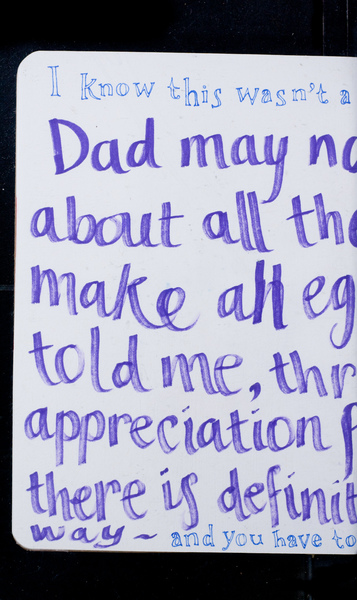 I know this wasn't a
Dad may no
about all the
make an eg
told me, thr
appreciation f
there is definit
way ~ and you have to